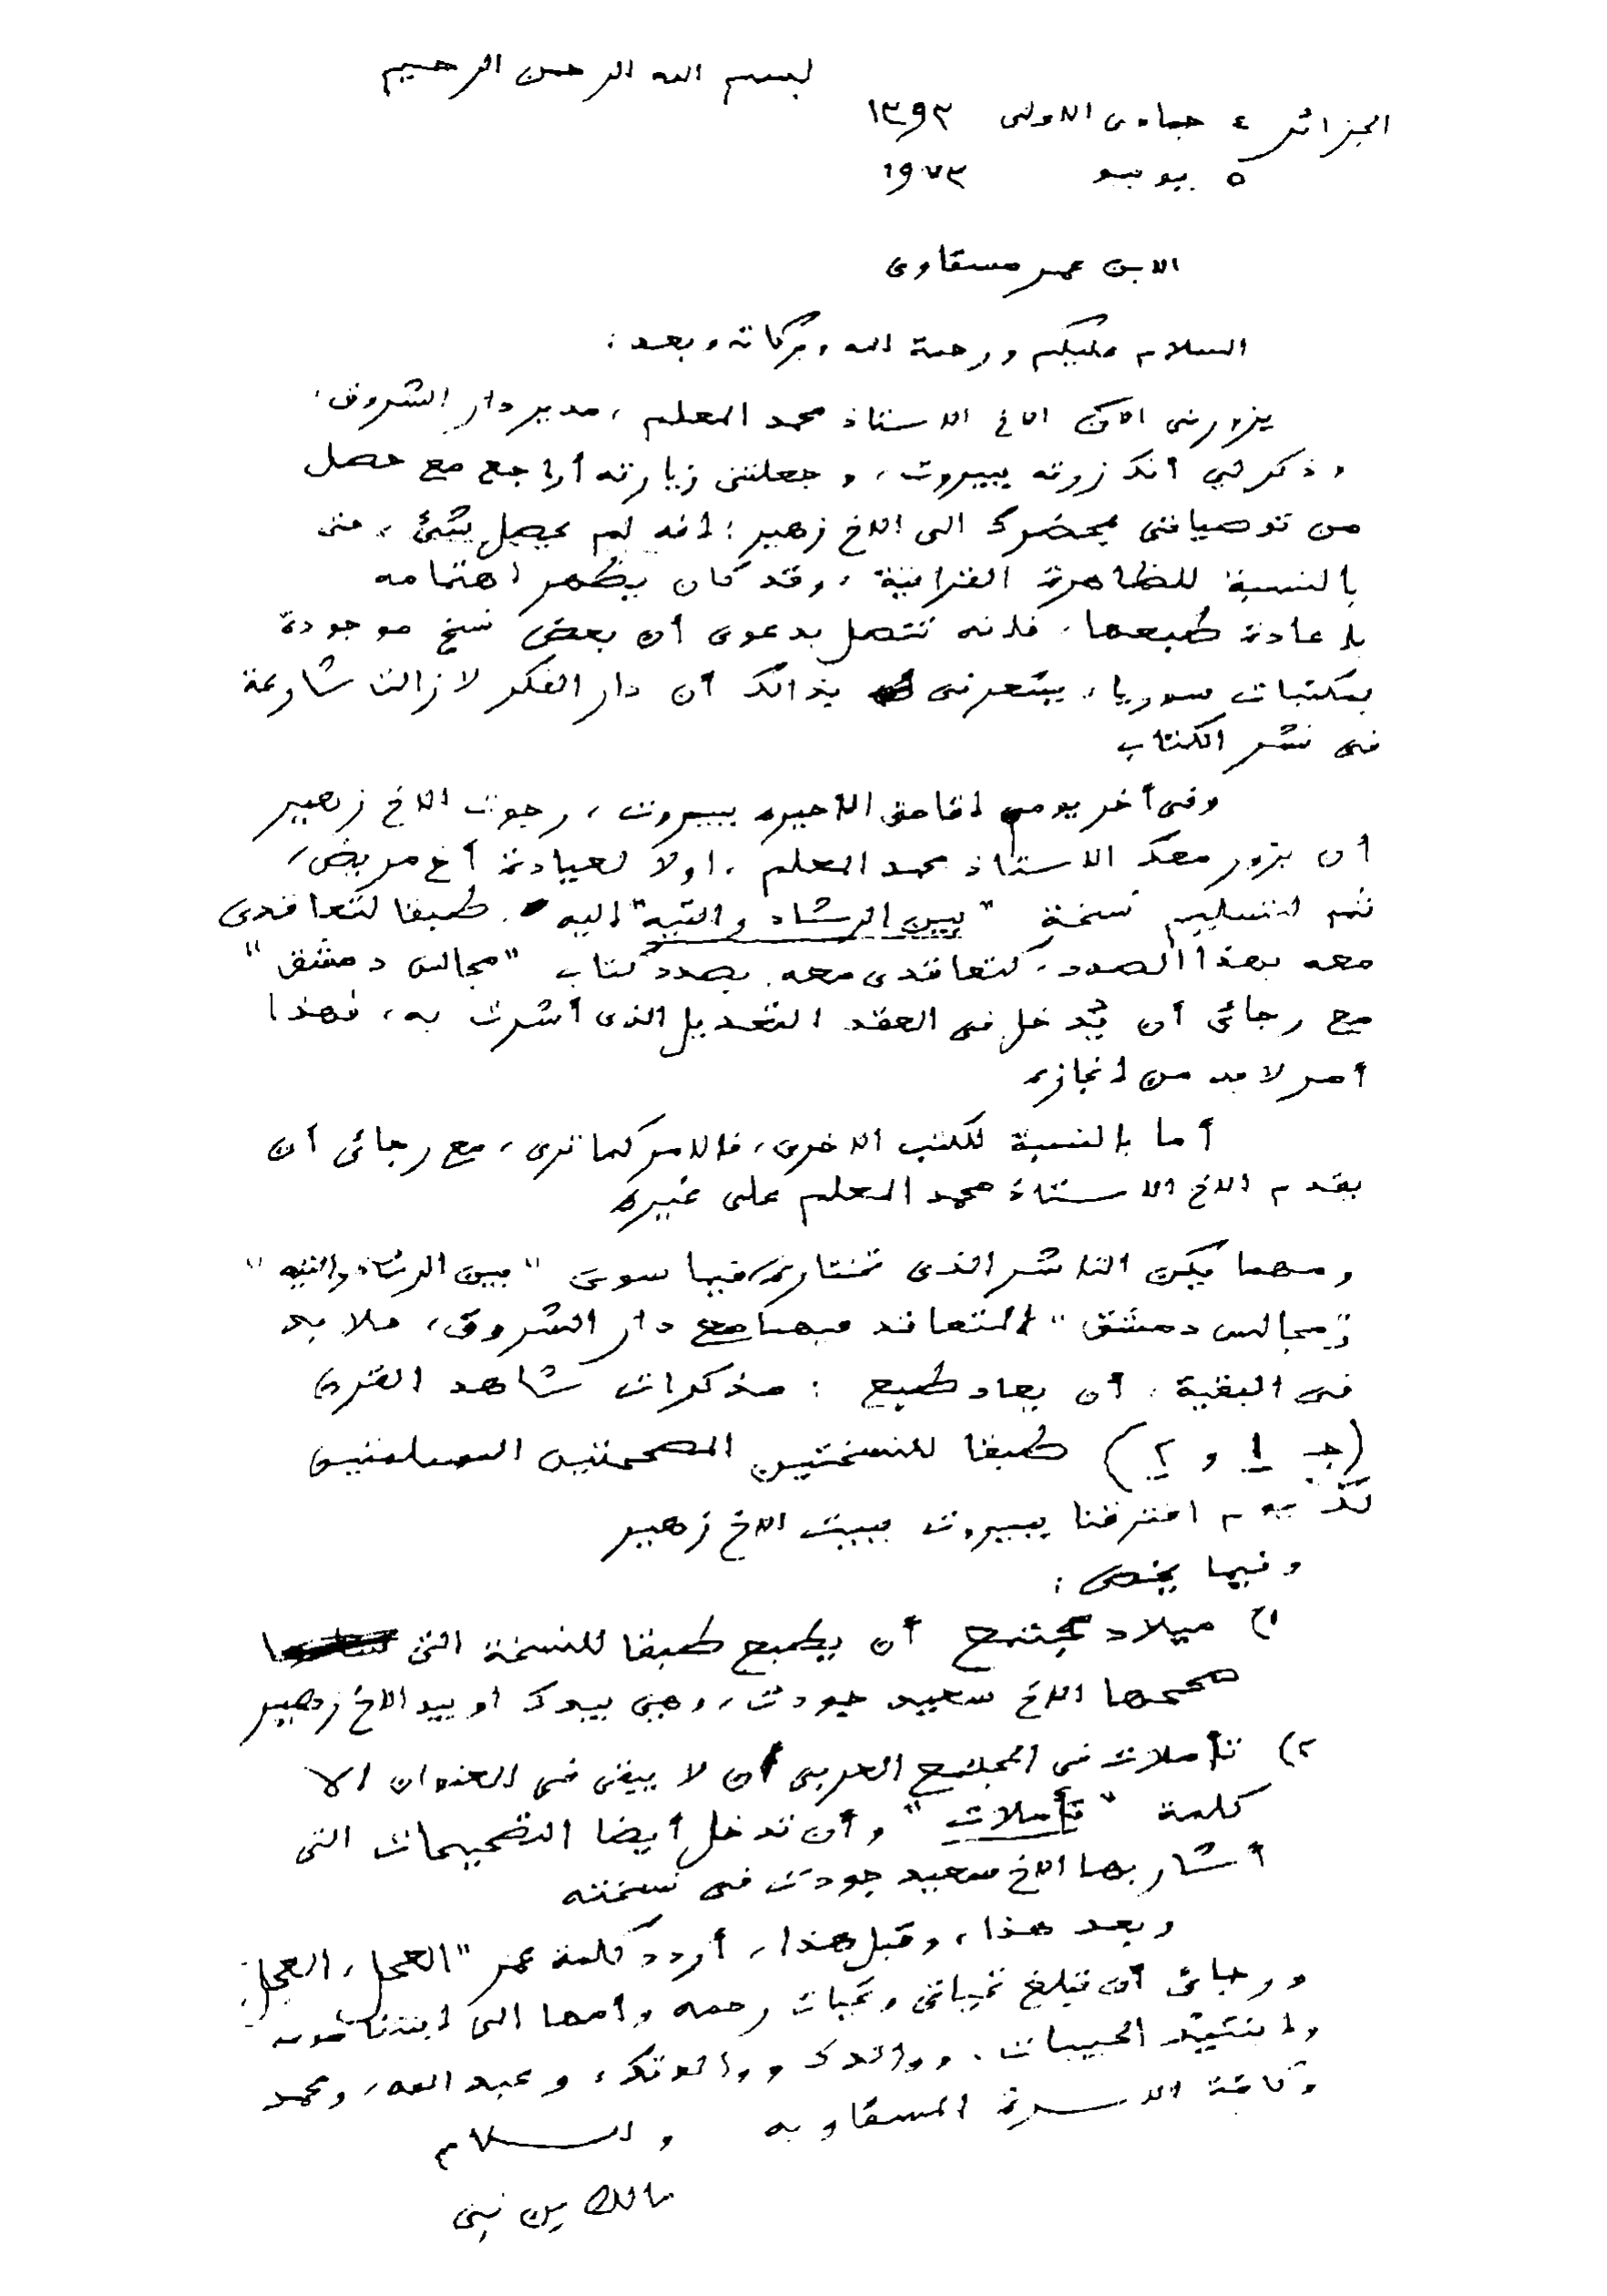 بسم الله الرحمن الرحيم
الجزائر ٤ جمادى الاولى ١٣٩٣
٥ يونيو ١٩٧٣
الابن عمر مسقاوى
السلام عليكم ورحمة الله وبركاته وبعد:
يزورنى الآن الاخ الاستاذ محمد المعلم، مدير دار الشروق،
وذكر لي أنك زرته ببيروت، وجعلتنى زيارته أراجع مع حصل
من توصياتى بمحضرك الى الاخ زهير: انه لم يحصل شئ، منى
بالنسبة للظاهرة القرانية، وقد كان يظهر اهتمامه
باعادة طبعها، فلانه تنصل بدعوى أن بعض نسخ موجودة
بمكتبات سوريا، يشعرنى بذالك أن دار الفكر لازالت شارعة
فى نشر الكتاب
وفى آخر يوم اقامتى الاخيره ببيروت، رجوت الاخ زهير
أن يزور معك الاستاذ محمد المعلم، اولا لعيادة أخ مريض،
ثم لتسليم نسخة "بين الرشاد والتيه" اليه، طبقا لتعاقدى
معه بهذا الصدد، كتعاقدى معه بصدد كتاب "مجالس دمشق"
مع رجائى أن يُدخل فى العقد التعديل الذى أشرت به، فهذا
أمر لا بد من انجازه
أما بالنسبة للكتب الاخرى، فالامر كما ترى، مع رجائى أن
يقدم الاخ الاستاذ محمد المعلم على غيره
ومهما يكن الناشر الذى تختاره فيما سوى "بين الرشاد والتيه"
و"مجالس دمشق" المتعاقد فيهما مع دار الشروق، فلا بد
فى البقية، أن يعاد طبع: مذكرات شاهد القرن
(جـ ١ و ٢) طبقا للنسختين المصححتين المسلمتين
لك يوم افترقنا ببيروت ببيت الاخ زهير
وفيما يخص:
١) ميلاد مجتمع أن يطبع طبقا للنسخة التى
صححها الاخ سعيد جودت، وهى بيدك او بيد الاخ زهير
٢) تأملات فى المجتمع العربى أن لا يبقى فى العنوان الا
كلمة "تأملات" وأن تدخل أيضا التصحيحات التى
أشار بها الاخ سعيد جودت فى نسخته
وبعد هذا، وقبل هذا، أردد كلمة عمر "العجل، العجل"
ورجائى أن تبلغ تحياتى وتحيات رحمه وأمها الى ابنتنا
وابنتيك الحبيبات، ووالدك ووالدتك، وعبد الله، ومحمد
وكافة الاسرة المسقاويه والسلام
مالك بن نبى